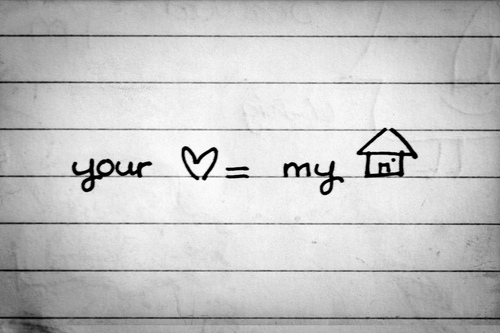 your ♡ = my 🏠